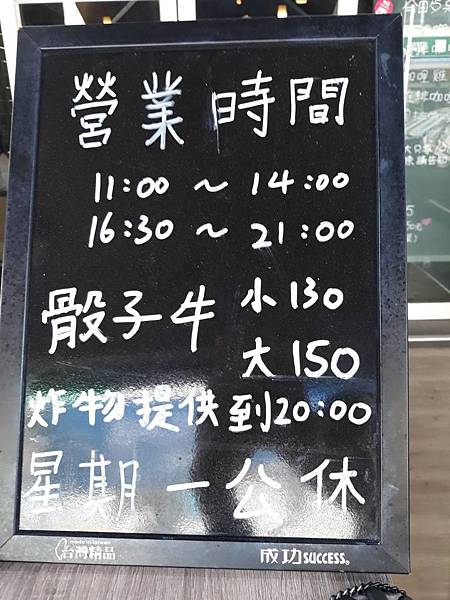 營業時間
11:00 ~ 14:00
16:30 ~ 21:00
骰子牛 小130
大150
炸物提供到20:00
星期一公休
made in taiwan
台灣精品
成功 SUCCESS®